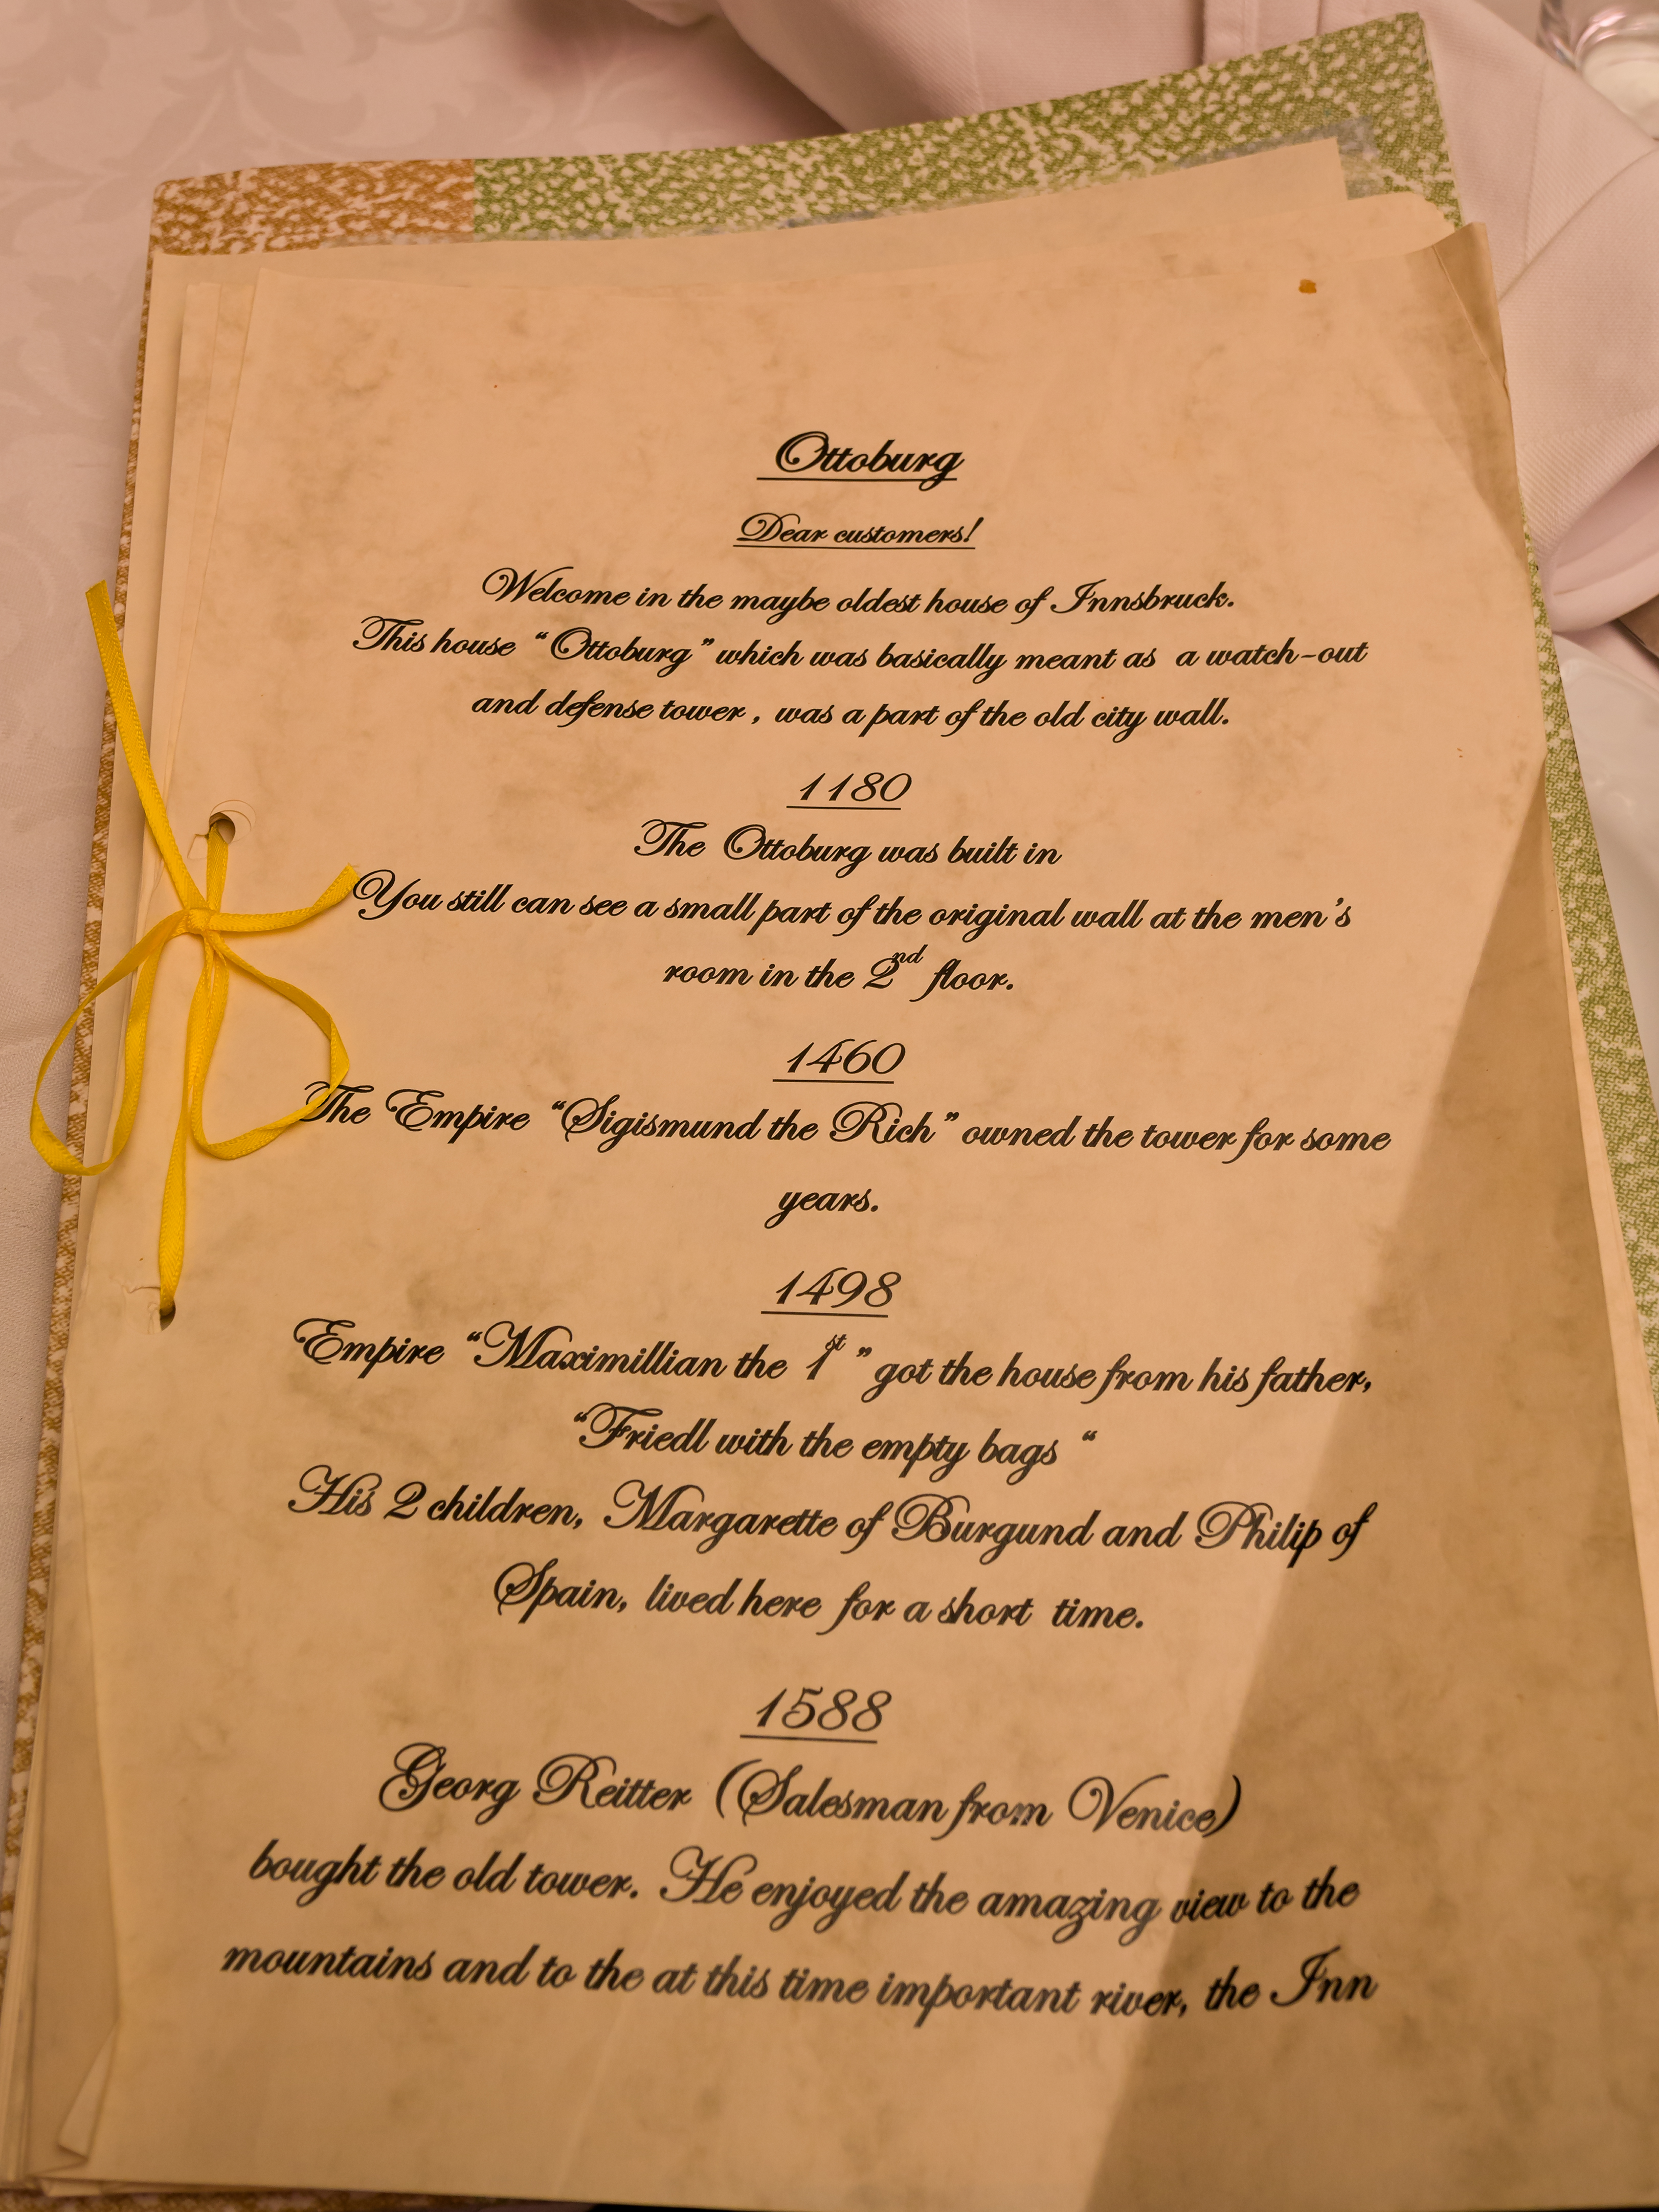 Ottoburg
Dear customers!
Welcome in the maybe oldest house of Innsbruck.
This house “Ottoburg” which was basically meant as a watch-out
and defense tower, was a part of the old city wall.
1180
The Ottoburg was built in
You still can see a small part of the original wall at the men’s
room in the 2nd floor.
1460
The Empire “Sigismund the Rich” owned the tower for some
years.
1498
Empire “Maximillian the 1st ” got the house from his father,
“Friedl with the empty bags “
His 2 children, Margarette of Burgund and Philip of
Spain, lived here for a short time.
1588
Georg Reitter (Salesman from Venice)
bought the old tower. He enjoyed the amazing view to the
mountains and to the at this time important river, the Inn